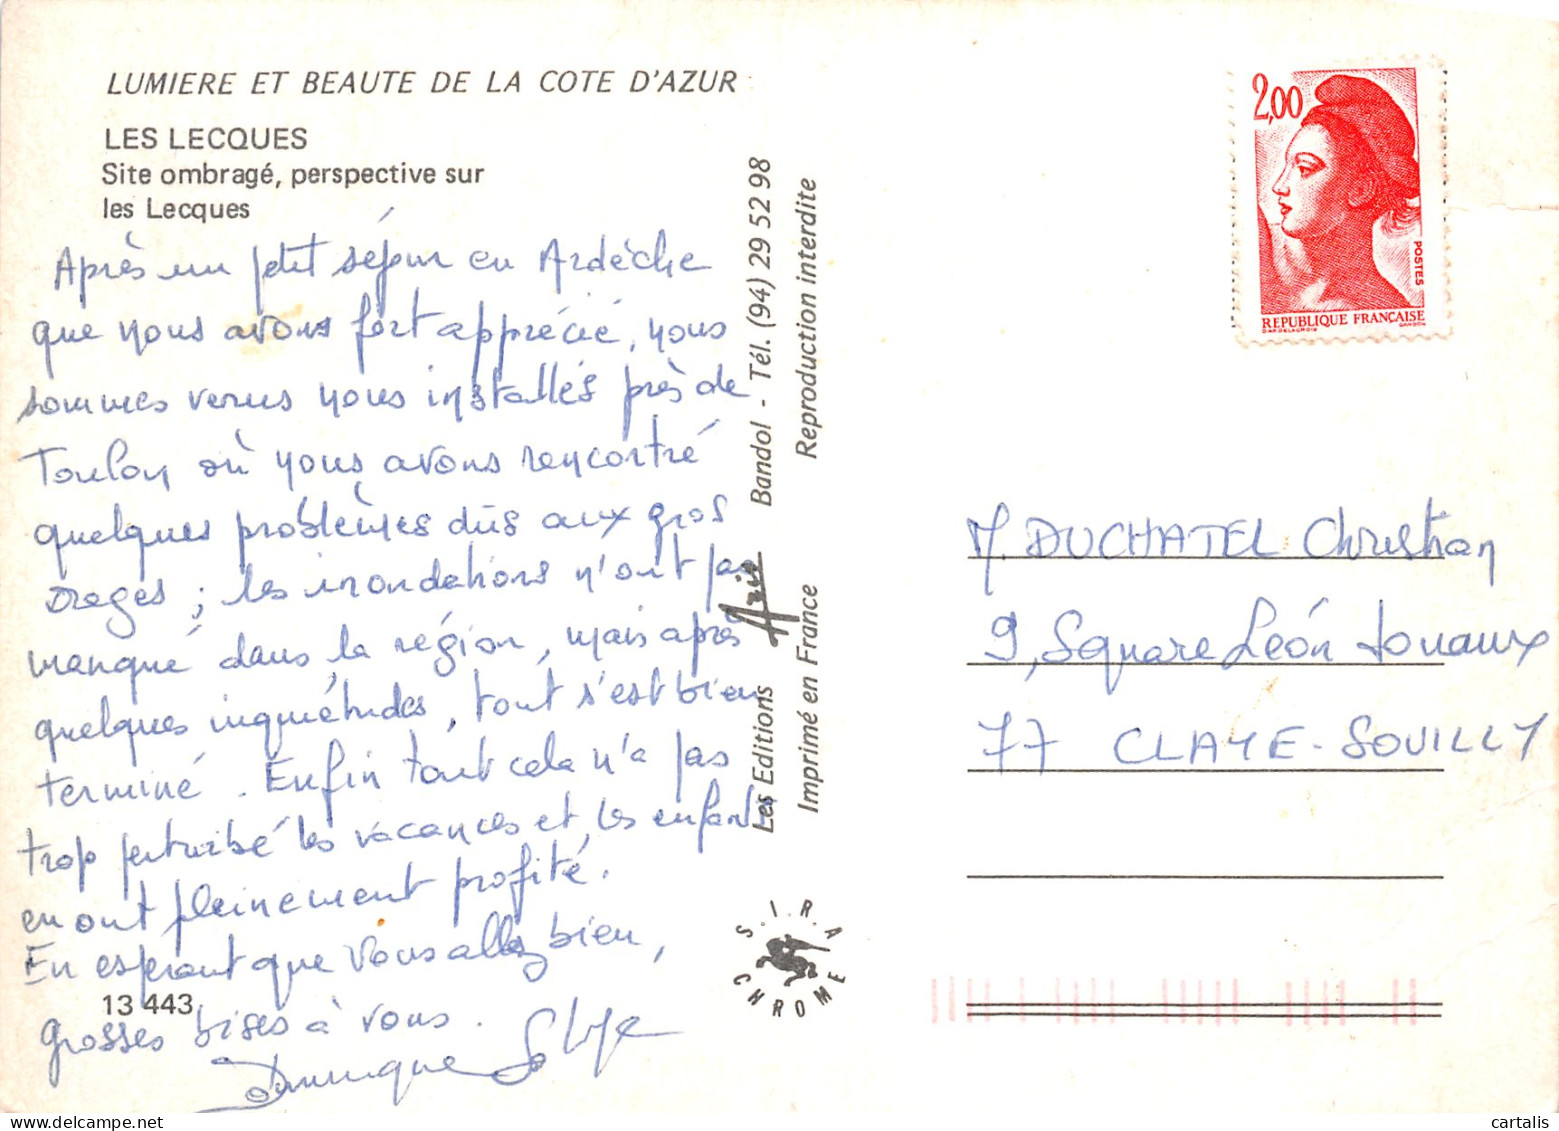 LUMIERE ET BEAUTE DE LA COTE D'AZUR
LES LECQUES
Site ombragé, perspective sur
les Lecques
Après un petit séjour en Ardèche
que nous avons fort apprécié, nous
sommes venus nous installés près de
Toulon où nous avons rencontré
quelques problèmes dûs aux gros
orages ; les inondations n'ont pas
manqué dans la région, mais après
quelques inquiétudes, tout s'est bien
terminé. Enfin tout cela n'a pas
trop perturbé les vacances et, les enfants
en ont pleinement profité.
En espérant que vous allez bien,
grosses bises à vous.
Dominique
13 443
Les Editions Aris Bandol - Tél. (94) 29 52 98
Imprimé en France Reproduction interdite
S.I.R.A
CHROME
2,00
POSTES
REPUBLIQUE FRANÇAISE
D'AP. DELACROIX GANDON
M. DUCHATEL Christian
9, Square Léon Jouaux
77 CLAYE-SOUILLY
cartalis